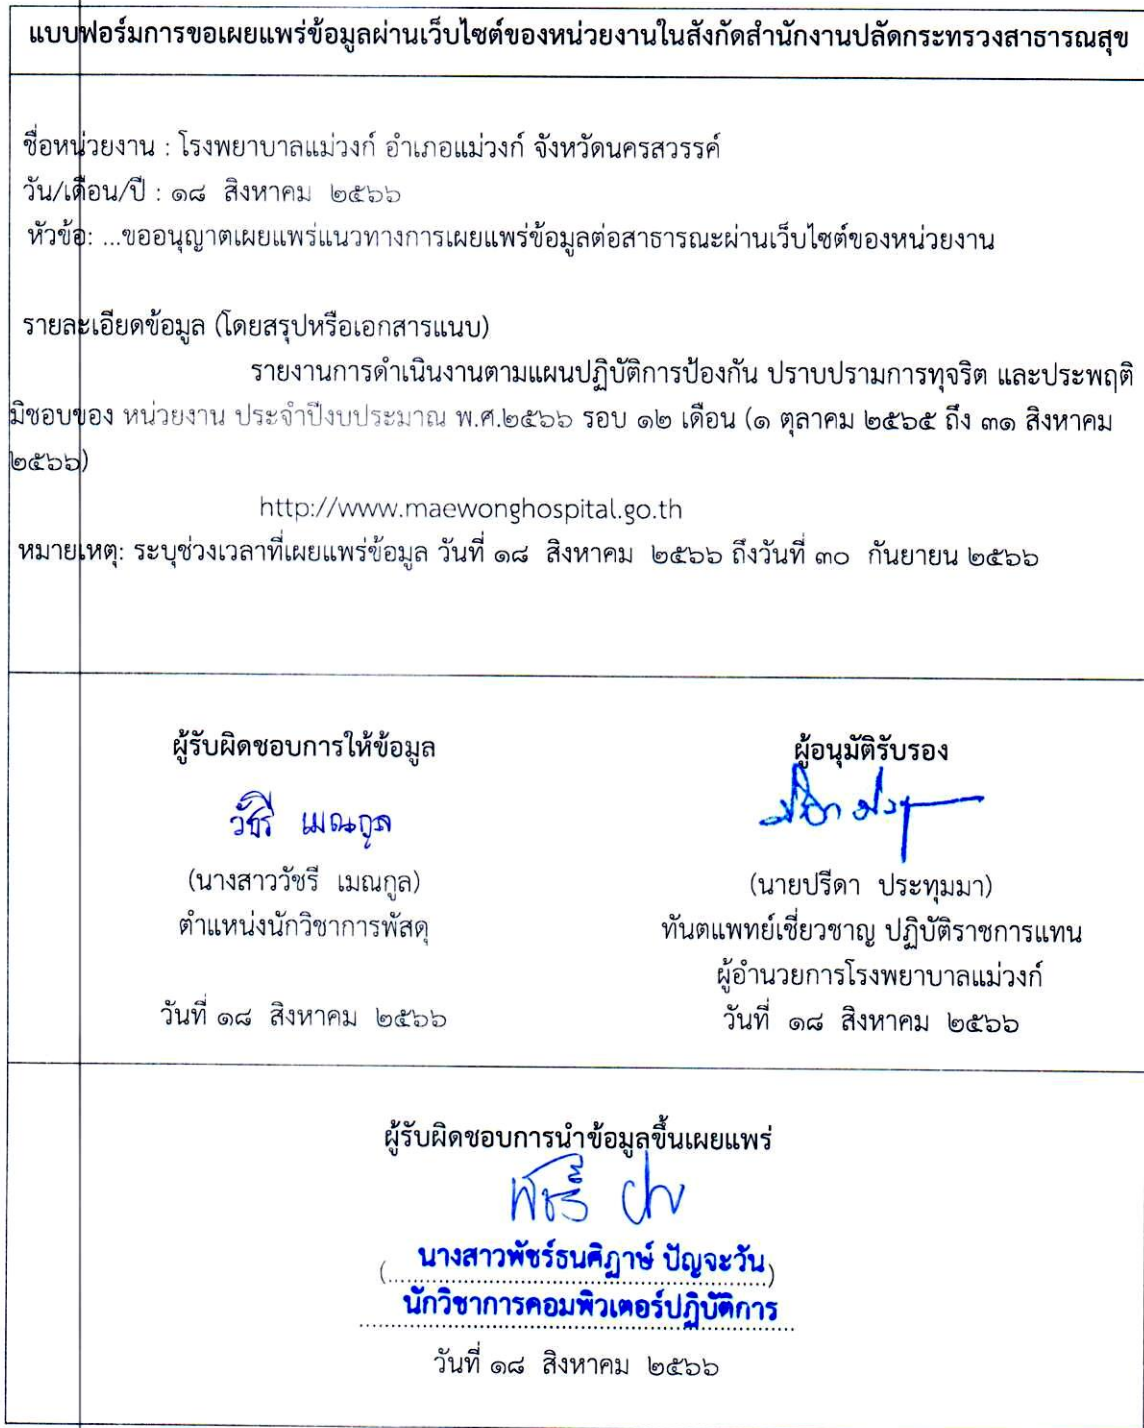 แบบฟอร์มการขอเผยแพร่ข้อมูลผ่านเว็บไซต์ของหน่วยงานในสังกัดสำนักงานปลัดกระทรวงสาธารณสุข
ชื่อหน่วยงาน : โรงพยาบาลแม่วงก์ อำเภอแม่วงก์ จังหวัดนครสวรรค์
วัน/เดือน/ปี : ๑๘ สิงหาคม ๒๕๖๖
หัวข้อ: ...ขออนุญาตเผยแพร่แนวทางการเผยแพร่ข้อมูลต่อสาธารณะผ่านเว็บไซต์ของหน่วยงาน
รายละเอียดข้อมูล (โดยสรุปหรือเอกสารแนบ)
รายงานการดำเนินงานตามแผนปฏิบัติการป้องกัน ปราบปรามการทุจริต และประพฤติ
มิชอบของ หน่วยงาน ประจำปีงบประมาณ พ.ศ.๒๕๖๖ รอบ ๑๒ เดือน (๑ ตุลาคม ๒๕๖๕ ถึง ๓๑ สิงหาคม
๒๕๖๖)
http://www.maewonghospital.go.th
หมายเหตุ: ระบุช่วงเวลาที่เผยแพร่ข้อมูล วันที่ ๑๘ สิงหาคม ๒๕๖๖ ถึงวันที่ ๓๐ กันยายน ๒๕๖๖
ผู้รับผิดชอบการให้ข้อมูล
วัชรี เมณกูล
(นางสาววัชรี เมณกูล)
ตำแหน่งนักวิชาการพัสดุ
วันที่ ๑๘ สิงหาคม ๒๕๖๖
ผู้อนุมัติรับรอง
(นายปรีดา ประทุมมา)
ทันตแพทย์เชี่ยวชาญ ปฏิบัติราชการแทน
ผู้อำนวยการโรงพยาบาลแม่วงก์
วันที่ ๑๘ สิงหาคม ๒๕๖๖
ผู้รับผิดชอบการนำข้อมูลขึ้นเผยแพร่
(นางสาวพัชร์ธนศิฎาษ์ ปัญจะวัน)
นักวิชาการคอมพิวเตอร์ปฏิบัติการ
วันที่ ๑๘ สิงหาคม ๒๕๖๖